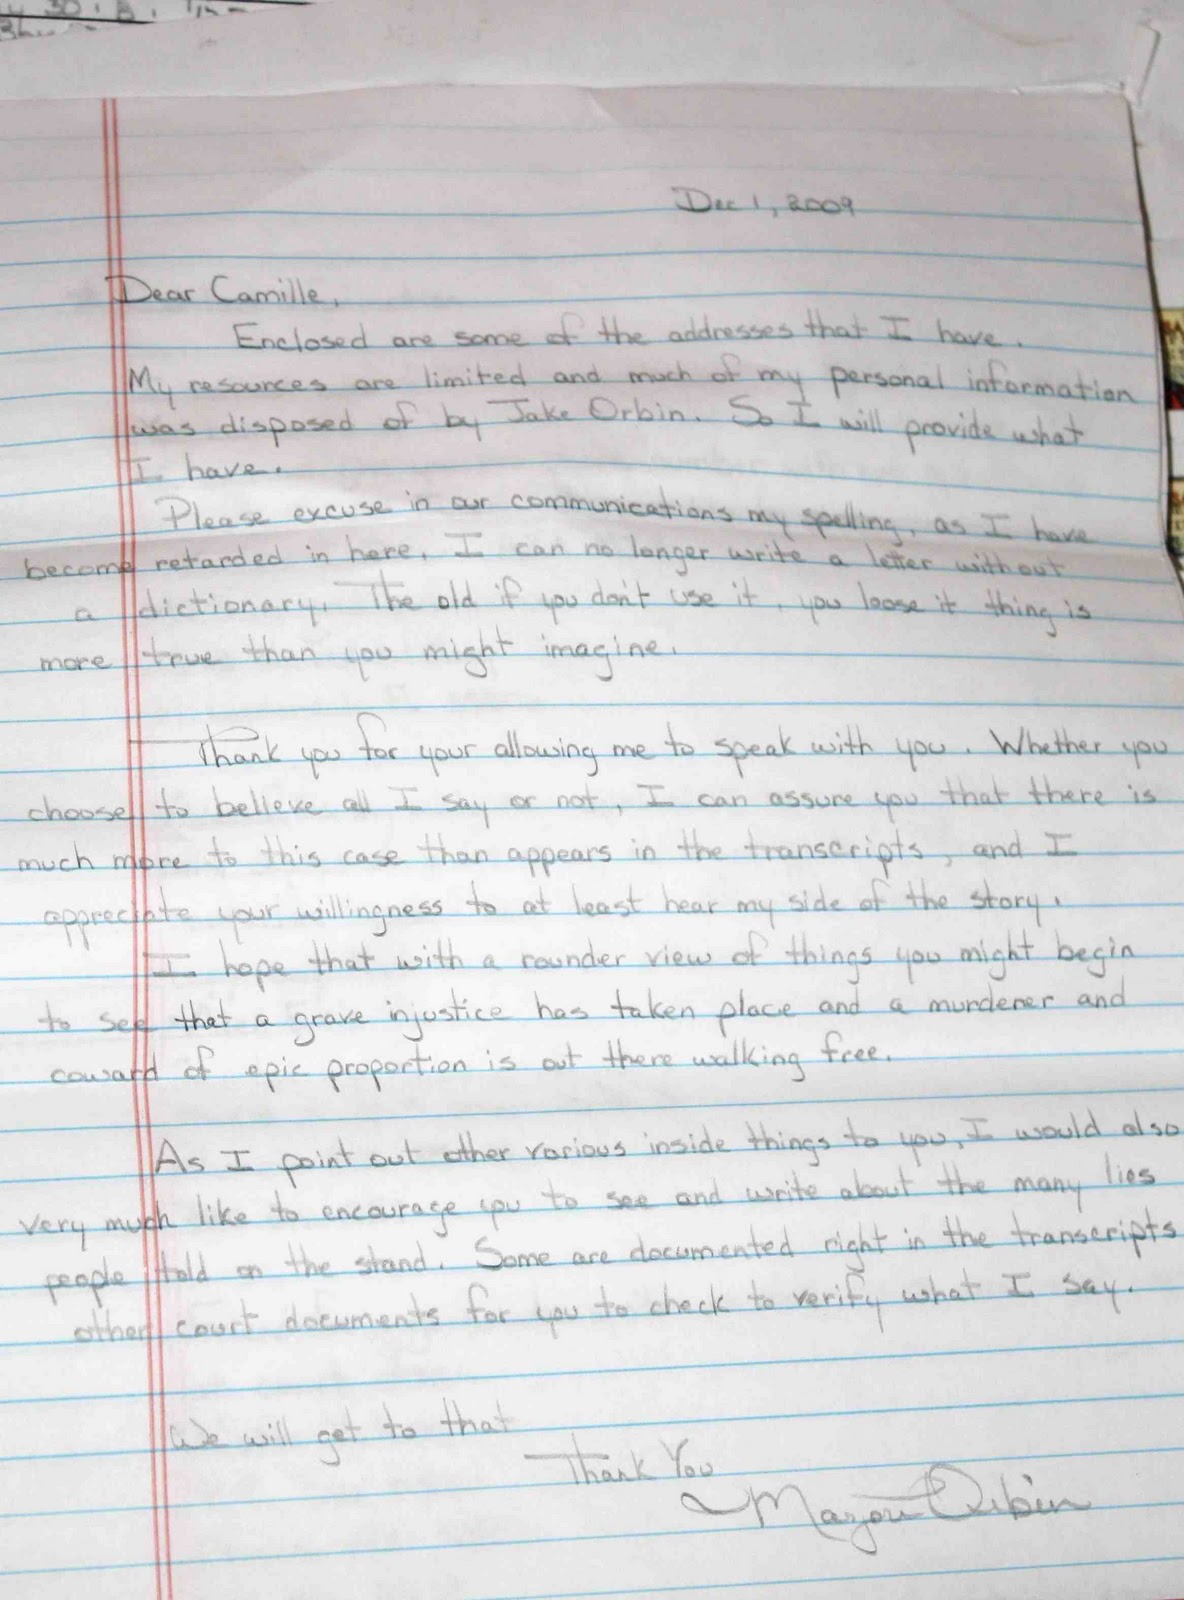 Dec 1, 2009
Dear Camille,
Enclosed are some of the addresses that I have.
My resources are limited and much of my personal information
was disposed of by Jake Orbin. So I will provide what
I have.
Please excuse in our communications my spelling, as I have
become retarded in here. I can no longer write a letter without
a dictionary. The old if you don't use it, you loose it thing is
more true than you might imagine.
Thank you for your allowing me to speak with you. Whether you
choose to believe all I say or not, I can assure you that there is
much more to this case than appears in the transcripts, and I
appreciate your willingness to at least hear my side of the story.
I hope that with a rounder view of things you might begin
to see that a grave injustice has taken place and a murderer and
coward of epic proportion is out there walking free.
As I point out other various inside things to you, I would also
very much like to encourage you to see and write about the many lies
people told on the stand. Some are documented right in the transcripts
other court documents for you to check to verify what I say.
We will get to that
Thank You
Marjorie Orbin